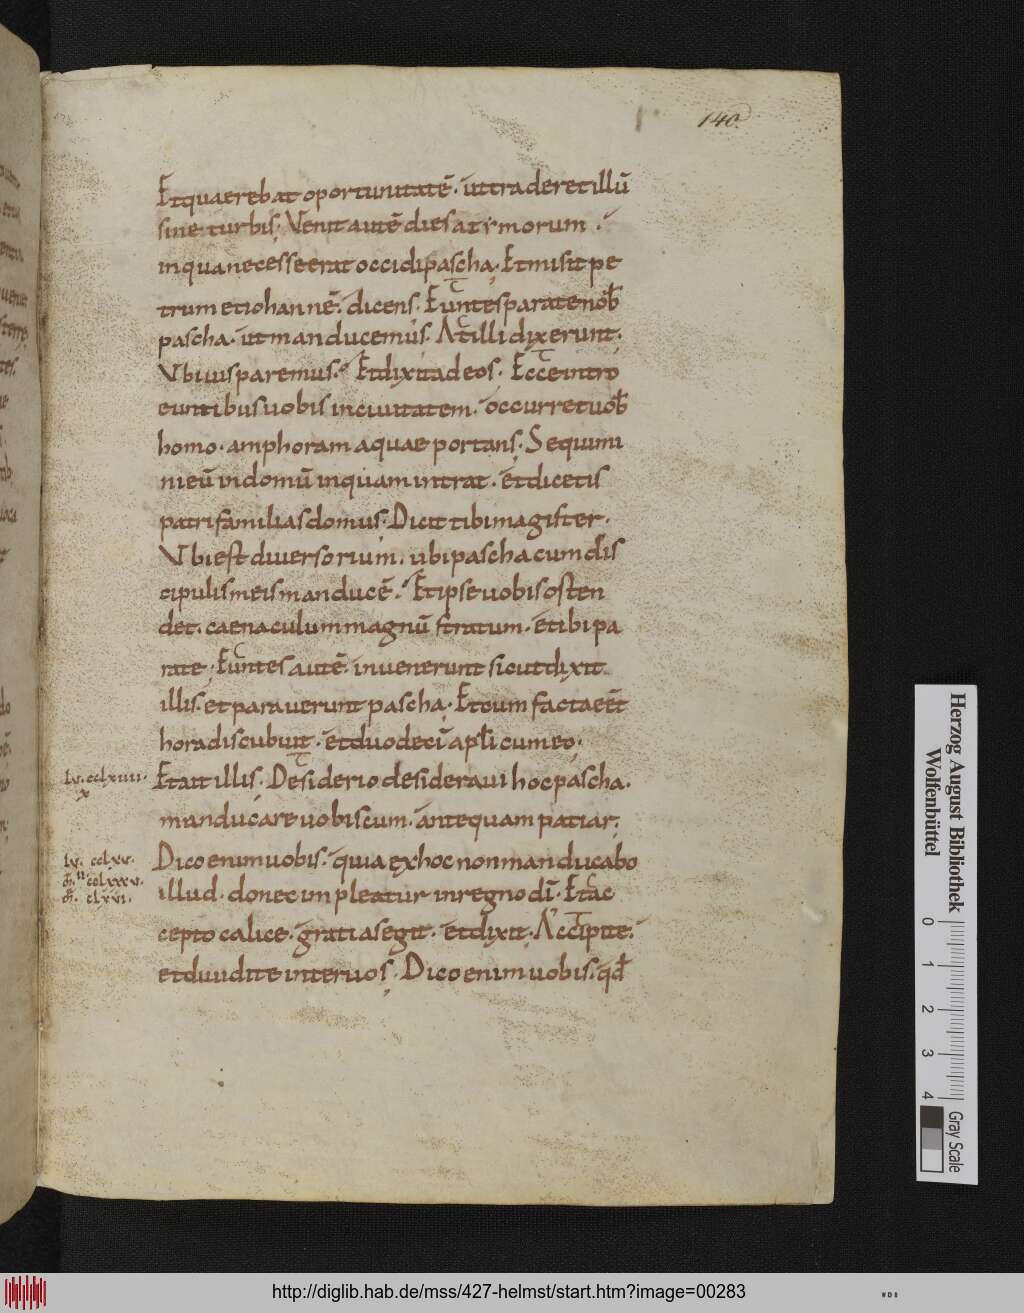 140
Et quaerebat oportunitatē. ut traderet illū
sine turbis. Venit autē dies atymorum.
in qua necesse erat occidi pascha. Et misit pe
trum et iohannē. dicens. Euntes parate nob̄
pascha. ut manducemus. At illi dixerunt.
Vbi uis paremus. Et dixit ad eos. Ecce intro
euntibus uobis in ciuitatem. occurret uob̄
homo. amphoram aquae portans. Sequimi
ni eū in domū in quam intrat. et dicetis
patri familias domus. Dicit tibi magister.
Vbi est diuersorium. ubi pascha cum dis
cipulis meis manducē. Et ipse uobis osten
det. caenaculum magnū stratum. et ibi pa
rate. Euntes autē. inuenerunt sicut dixit
illis. et parauerunt pascha. Et cum facta eēt
hora discubuit. et duodecī apłi cum eo.
lv. cclxiiii. Et ait illis. Desiderio desideraui hoc pascha.
x
manducare uobiscum. antequam patiar.
lv. cclxv. Dico enim uobis. quia ex hoc non manducabo
cclxxxv. illud. donec impleatur in regno dī. Et ac
clxvi.
cepto calice. gratias egit. et dixit. Accipite.
et diuidite inter uos. Dico enim uobis. qđ
Herzog August Bibliothek
Wolfenbüttel
0 1 2 3 4
Gray Scale
http://diglib.hab.de/mss/427-helmst/start.htm?image=00283